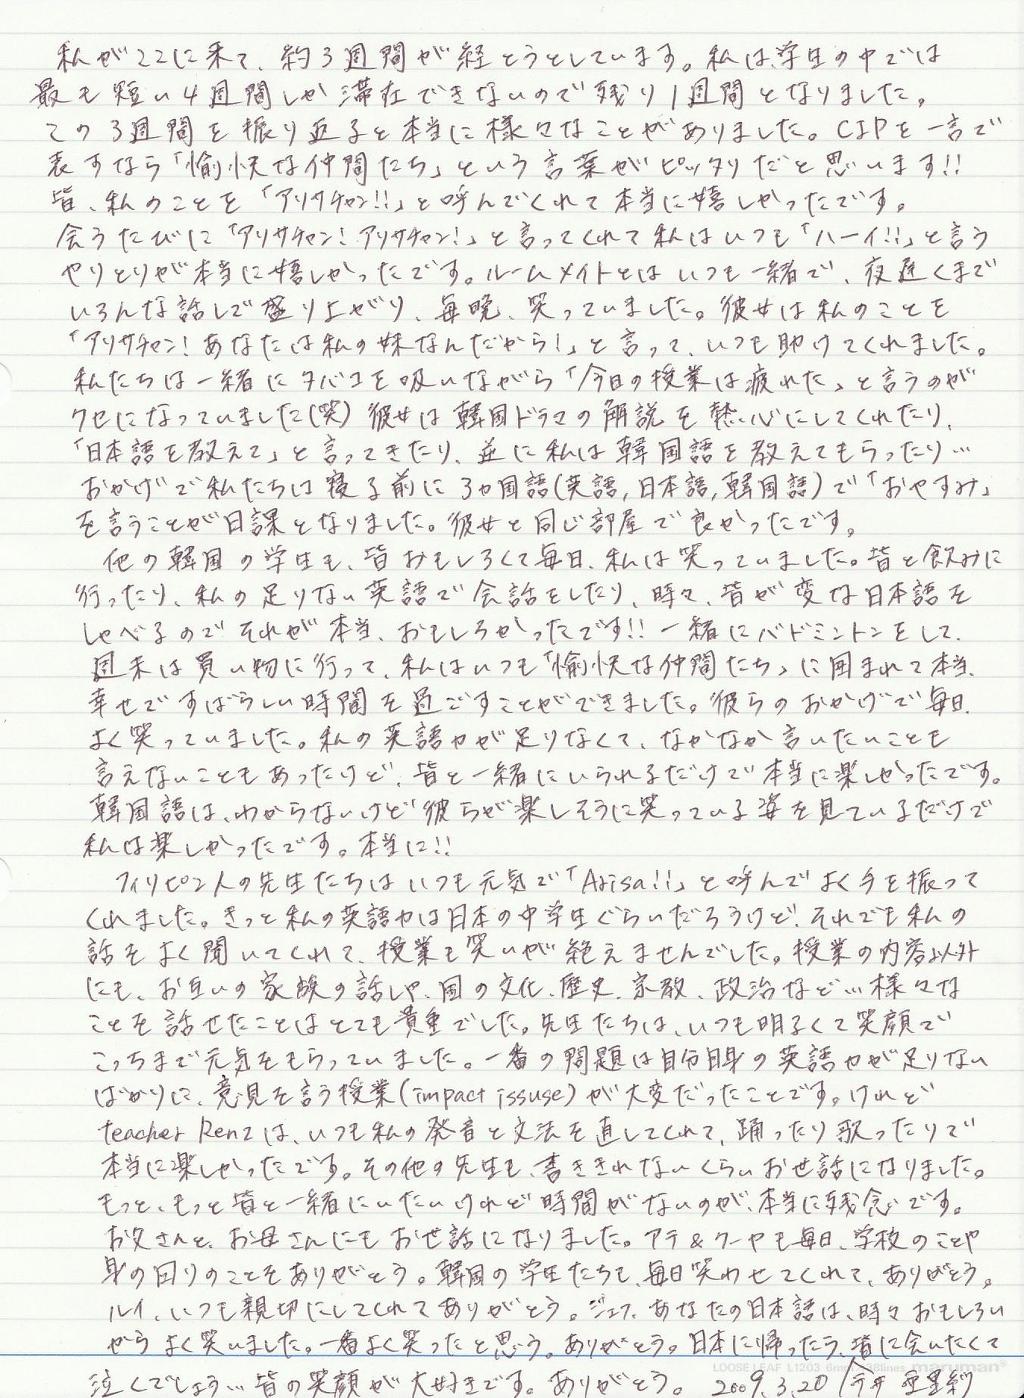 私がここに来て、約3週間が経とうとしています。私は、学生の中では
最も短い4週間しか滞在できないので残り1週間となりました。
この3週間を振り返ると本当に様々なことがありました。CIPを一言で
表すなら「愉快な仲間たち」という言葉がピッタリだと思います!!
皆、私のことを「アリサチャン!!」と呼んでくれて本当に嬉しかったです。
会うたびに「アリサチャン!アリサチャン!」と言ってくれて私はいつも「ハーイ!!」と言う
やりとりが本当に嬉しかったです。ルームメイトとはいつも一緒で、夜遅くまで
いろんな話しで盛り上がり、毎晩、笑っていました。彼女は私のことを
「アリサチャン!あなたは私の妹なんだから!」と言って、いつも助けてくれました。
私たちは一緒にタバコを吸いながら「今日の授業は疲れた」と言うのが
クセになっていました(笑)彼女は韓国ドラマの解説を熱心にしてくれたり、
「日本語を教えて」と言ってきたり、逆に私は韓国語を教えてもらったり…
おかげで私たちは寝る前に3ヵ国語(英語,日本語,韓国語)で「おやすみ」
を言うことが日課となりました。彼女と同じ部屋で良かったです。
他の韓国の学生も、皆おもしろくて毎日、私は笑っていました。皆と飲みに
行ったり、私の足りない英語で会話をしたり、時々、皆が変な日本語を
しゃべるのでそれが本当、おもしろかったです!!一緒にバドミントンをして、
週末は買い物に行って、私はいつも「愉快な仲間たち」に囲まれて本当、
幸せですばらしい時間を過ごすことができました。彼らのおかげで毎日、
よく笑っていました。私の英語力が足りなくて、なかなか言いたいことも
言えないこともあったけど、皆と一緒にいられるだけで本当に楽しかったです。
韓国語は、わからないけど彼らが楽しそうに笑っている姿を見ているだけで
私は楽しかったです。本当に!!
フィリピン人の先生たちはいつも元気で「Arisa!!」と呼んでよく手を振って
くれました。きっと私の英語力は日本の中学生ぐらいだろうけど、それでも私の
話をよく聞いてくれて、授業も笑いが絶えませんでした。授業の内容以外
にも、お互いの家族の話しや、国の文化、歴史、宗教、政治など…様々な
ことを話せたことはとても貴重でした。先生たちは、いつも明るくて笑顔で
こっちまで元気をもらっていました。一番の問題は自分自身の英語力が足りない
ばかりに、意見を言う授業(impact issuse)が大変だったことです。けれど
teacher Renzは、いつも私の発音と文法を直してくれて、踊ったり歌ったりで
本当に楽しかったです。その他の先生も、書ききれないくらいお世話になりました。
もっと、もっと皆と一緒にいたいけれど時間がないのが、本当に残念です。
お父さんと、お母さんにもお世話になりました。アテ&クーヤも毎日、学校のことや
身の回りのことをありがとう。韓国の学生たちも、毎日笑わせてくれて、ありがとう。
ルイ、いつも親切にしてくれてありがとう。ジェフ、あなたの日本語は、時々おもしろい
からよく笑いました。一番よく笑ったと思う。ありがとう。日本に帰ったら、皆に会いたくて
泣くでしょう…皆の笑顔が大好きです。ありがとう。 2009.3.20 今井
LOOSE LEAF L1203 6mm 38lines maruman